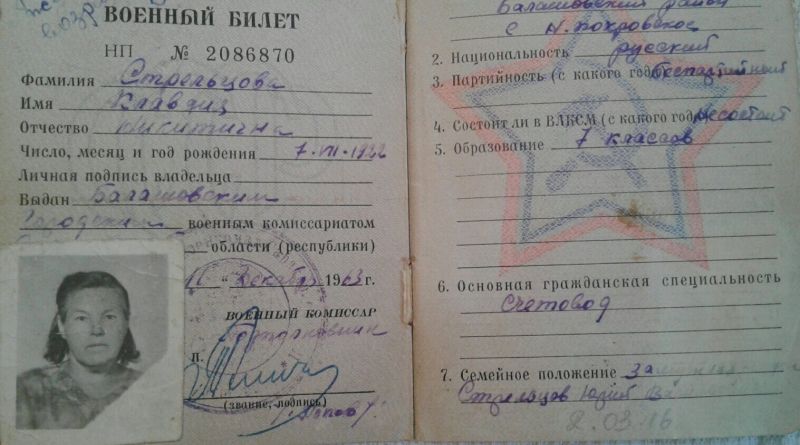 ВОЕННЫЙ БИЛЕТ
НП № 2086870
Фамилия Стрельцова
Имя Клавдия
Отчество Никитична
Число, месяц и год рождения 7-VII-1922
Личная подпись владельца
Выдан Балашовским
Городским военным комиссариатом
области (республики)
декабря 1963 г.
ВОЕННЫЙ КОМИССАР
(звание, подпись)
Балашовский район
с Н. Покровское
2. Национальность русский
3. Партийность (с какого года) беспартийный
4. Состоит ли в ВЛКСМ (с какого года) не состоит
5. Образование 7 классов
6. Основная гражданская специальность
Счетовод
7. Семейное положение
Стрельцов Юрий
2.03.16